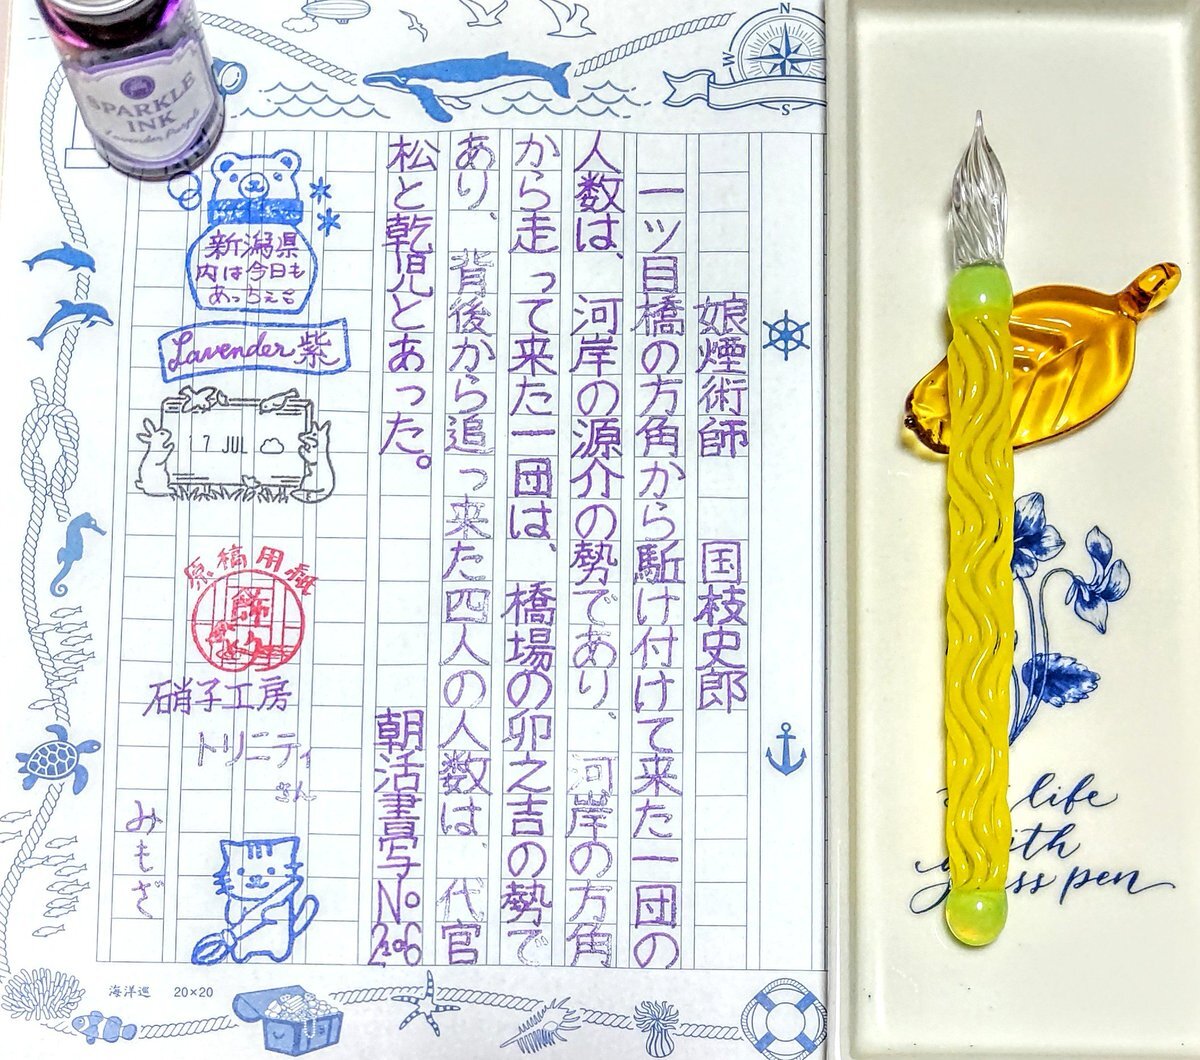 娘煙術師 国枝史郎
一ツ目橋の方角から駈け付けて来た一団の
人数は、河岸の源介の勢であり、河岸の方角
から走って来た一団は、橋場の卯之吉の勢で
あり、背後から追っ来た四人の人数は、代官
松と乾児とあった。
朝活書写No206
新潟県
内は今日も
あっちぇ
Lavender紫
17 JUL
原稿用紙
硝子工房
トリニティ
さん
みもざ
SPARKLE
INK
Lavender Purple
N
W
S
海洋巡 20×20
life
with
glass pen